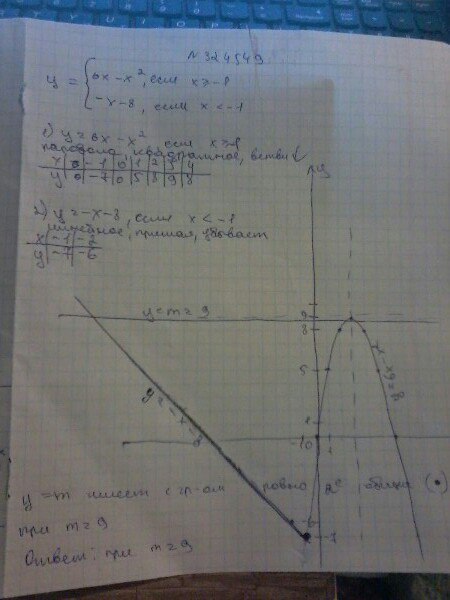 № 324549
y = { 6x - x², если x ≥ -1
-x - 8, если x < -1
1) y = 6x - x² если x ≥ -1
парабола, квадратичное, ветви ↓
x | 0 | -1 | 0 | 1 | 2 | 3 | 4
y | 0 | -7 | 0 | 5 | 8 | 9 | 8
2) y = -x - 8, если x < -1
линейное, прямая, убывает
x | -1 | -2
y | -7 | -6
y
y = m = 9
9
8
5
1
0
1
y = -x - 8
-6
-7
y = m имеет с гр-ом ровно 2е общие (•)
при m = 9
Ответ: при m = 9